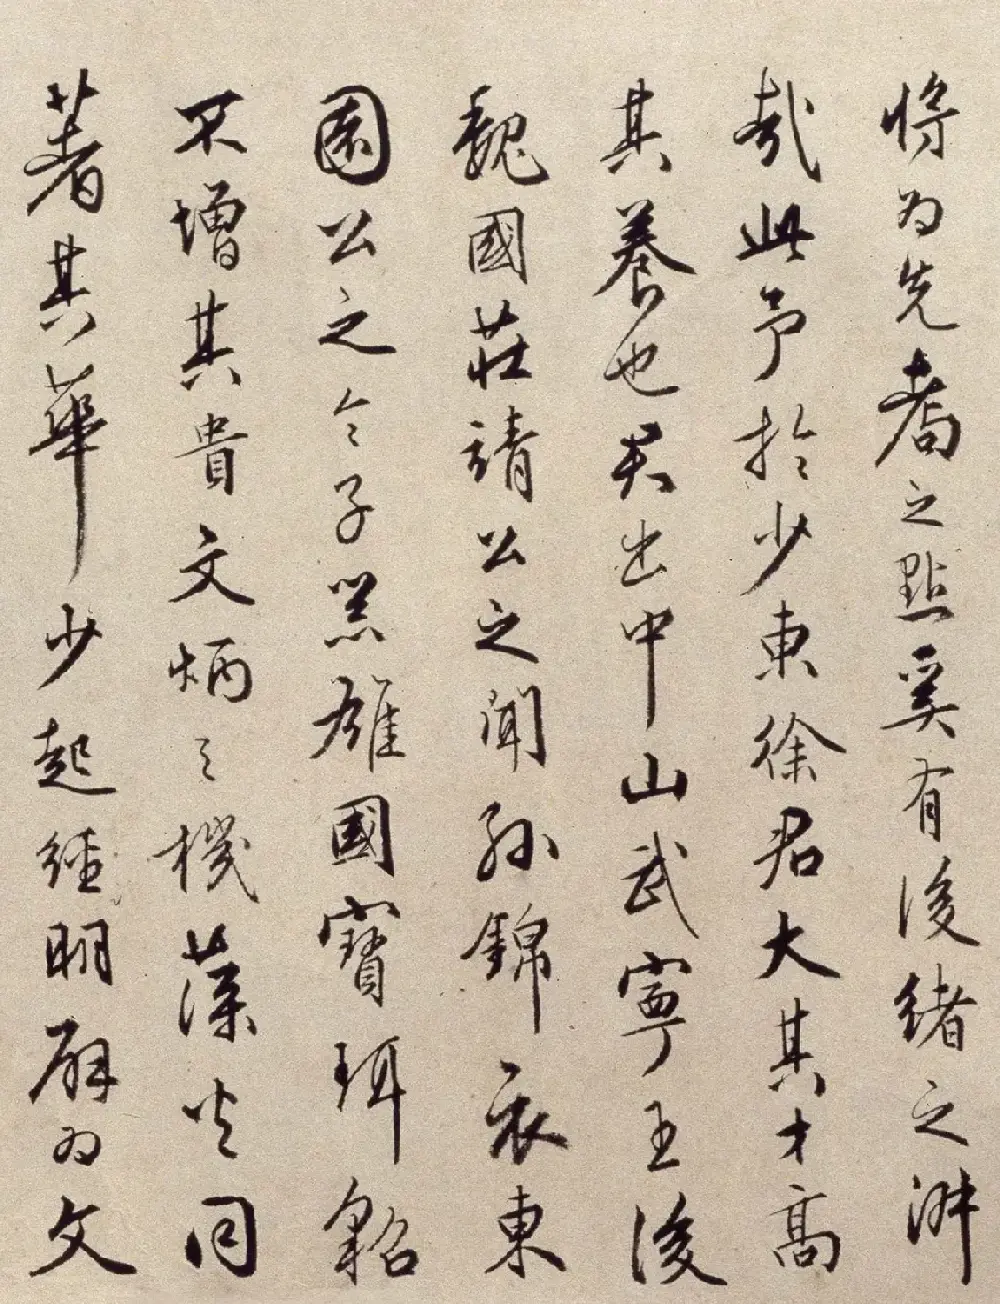 將為先耆之點奚有後緒之湃
哉此予於少東徐君大其才高
其養也君出中山武寧王後
魏國莊靖公之聞孫錦衣東
園公之令子器雄國寶珥貂
不增其貴文炳之機藻火同
著其華少起經明辟為文